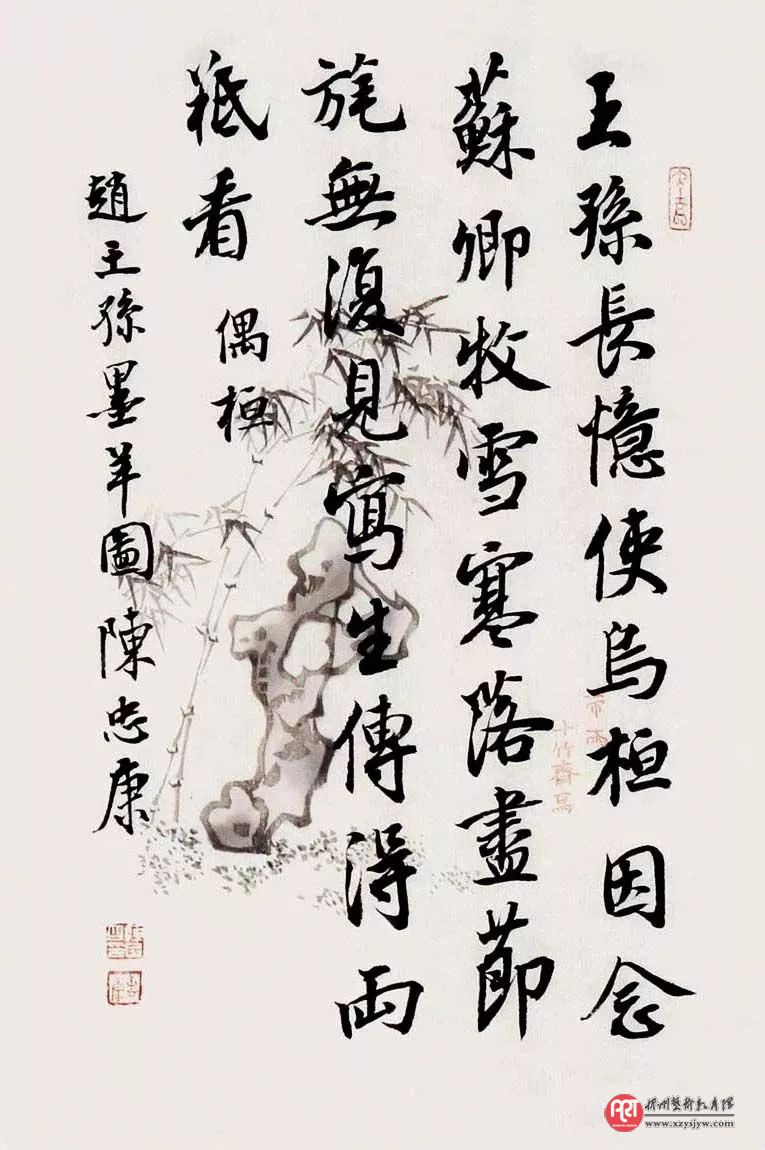 王孫長憶使烏桓因念
蘇卿牧雪寒落盡節
旄無復見寫生傳得兩
羝看 偶桓
趙王孫墨羊圖陳忠康
十竹齋寫
www.xzysjyw.com